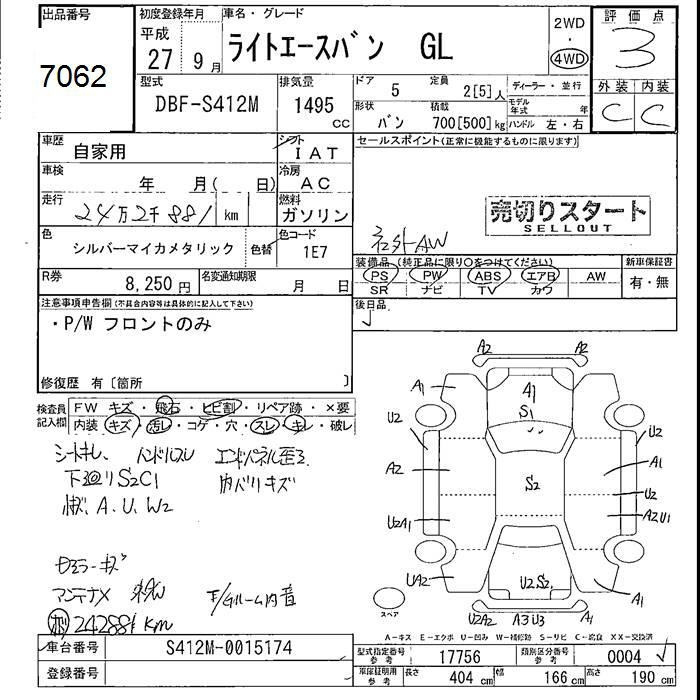 出品番号 初度登録年月 車名・グレード 2WD 評価点
7062 平成 27 9月 ライトエースバン GL 4WD 3
型式 排気量 ドア 5 定員 2[5]人 ディーラー・並行 外装 内装
DBF-S412M 1495 CC 形状 バン 積載 700[500]kg モデル年式 年 C C
ハンドル 左・右
車歴 自家用 シフト IAT セールスポイント(正常に機能するものに限ります)
車検 年 月( 日) 冷房 AC
走行 24万2千881 km 燃料 ガソリン 売切りスタート
SELLOUT
社外AW
色 シルバーマイカメタリック 色替 色コード 1E7
装備品(純正品に限り○をつけてください) 新車保証書
PS PW ABS エアB AW 有・無
SR ナビ TV カワ
R券 8,250円 名変通知期限 月 日
後日品
注意事項申告欄(不具合内容等は具体的に記入して下さい)
・P/W フロントのみ
修復歴 有[箇所 ]
検査員記入欄 FW キズ・飛石・ヒビ割・リペア跡・×要
内装・キズ・汚レ・コゲ・穴・スレ・キレ・破レ
シートキレ、ハンドルスレ エンドパネル歪ミ
下廻リS2C1 内バリキズ
A.U.W2
24288 km
A2 A2
A1 A1
S1
U2 U2
A2 A1
S2 U2
U2A1 A2U1
UA2 U2S2 A1
スペア
U2A2 A3U3 A1
A-キズ E-エクボ U-凹み W-補修跡 S-サビ C-腐食 XX-交換済
車台番号 S412M-0015174 型式指定番号 参考 17756 類別区分番号 参考 0004
登録番号 車庫証明用 参考 長さ 404 cm 幅 166 cm 高さ 190 cm